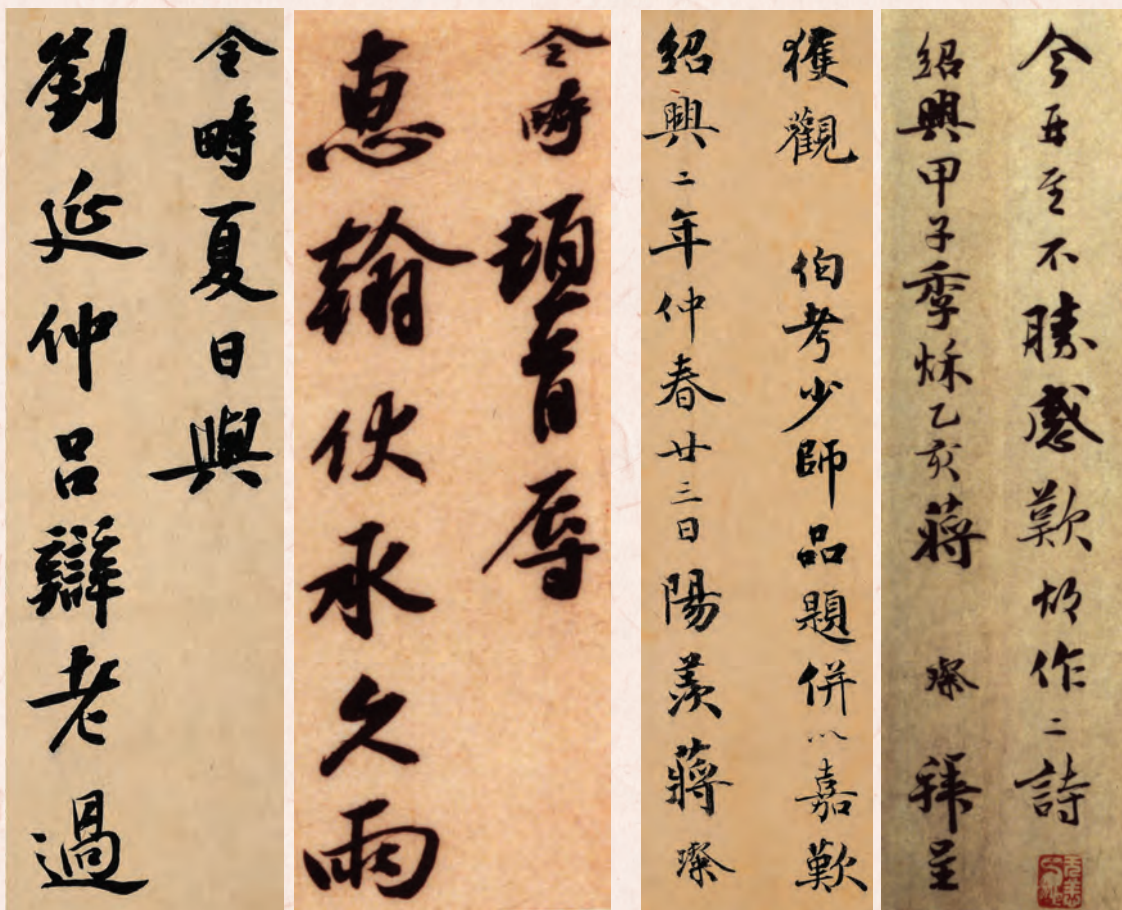 令畤夏日與
劉延仲呂辯老過
令畤頓首辱
惠翰伏承久雨
獲觀 伯考少師品題併以嘉歎
紹興二年仲春廿三日陽羨蔣璨
今再至不勝感歎作二詩
紹興甲子季秌乙亥蔣 璨 拜呈